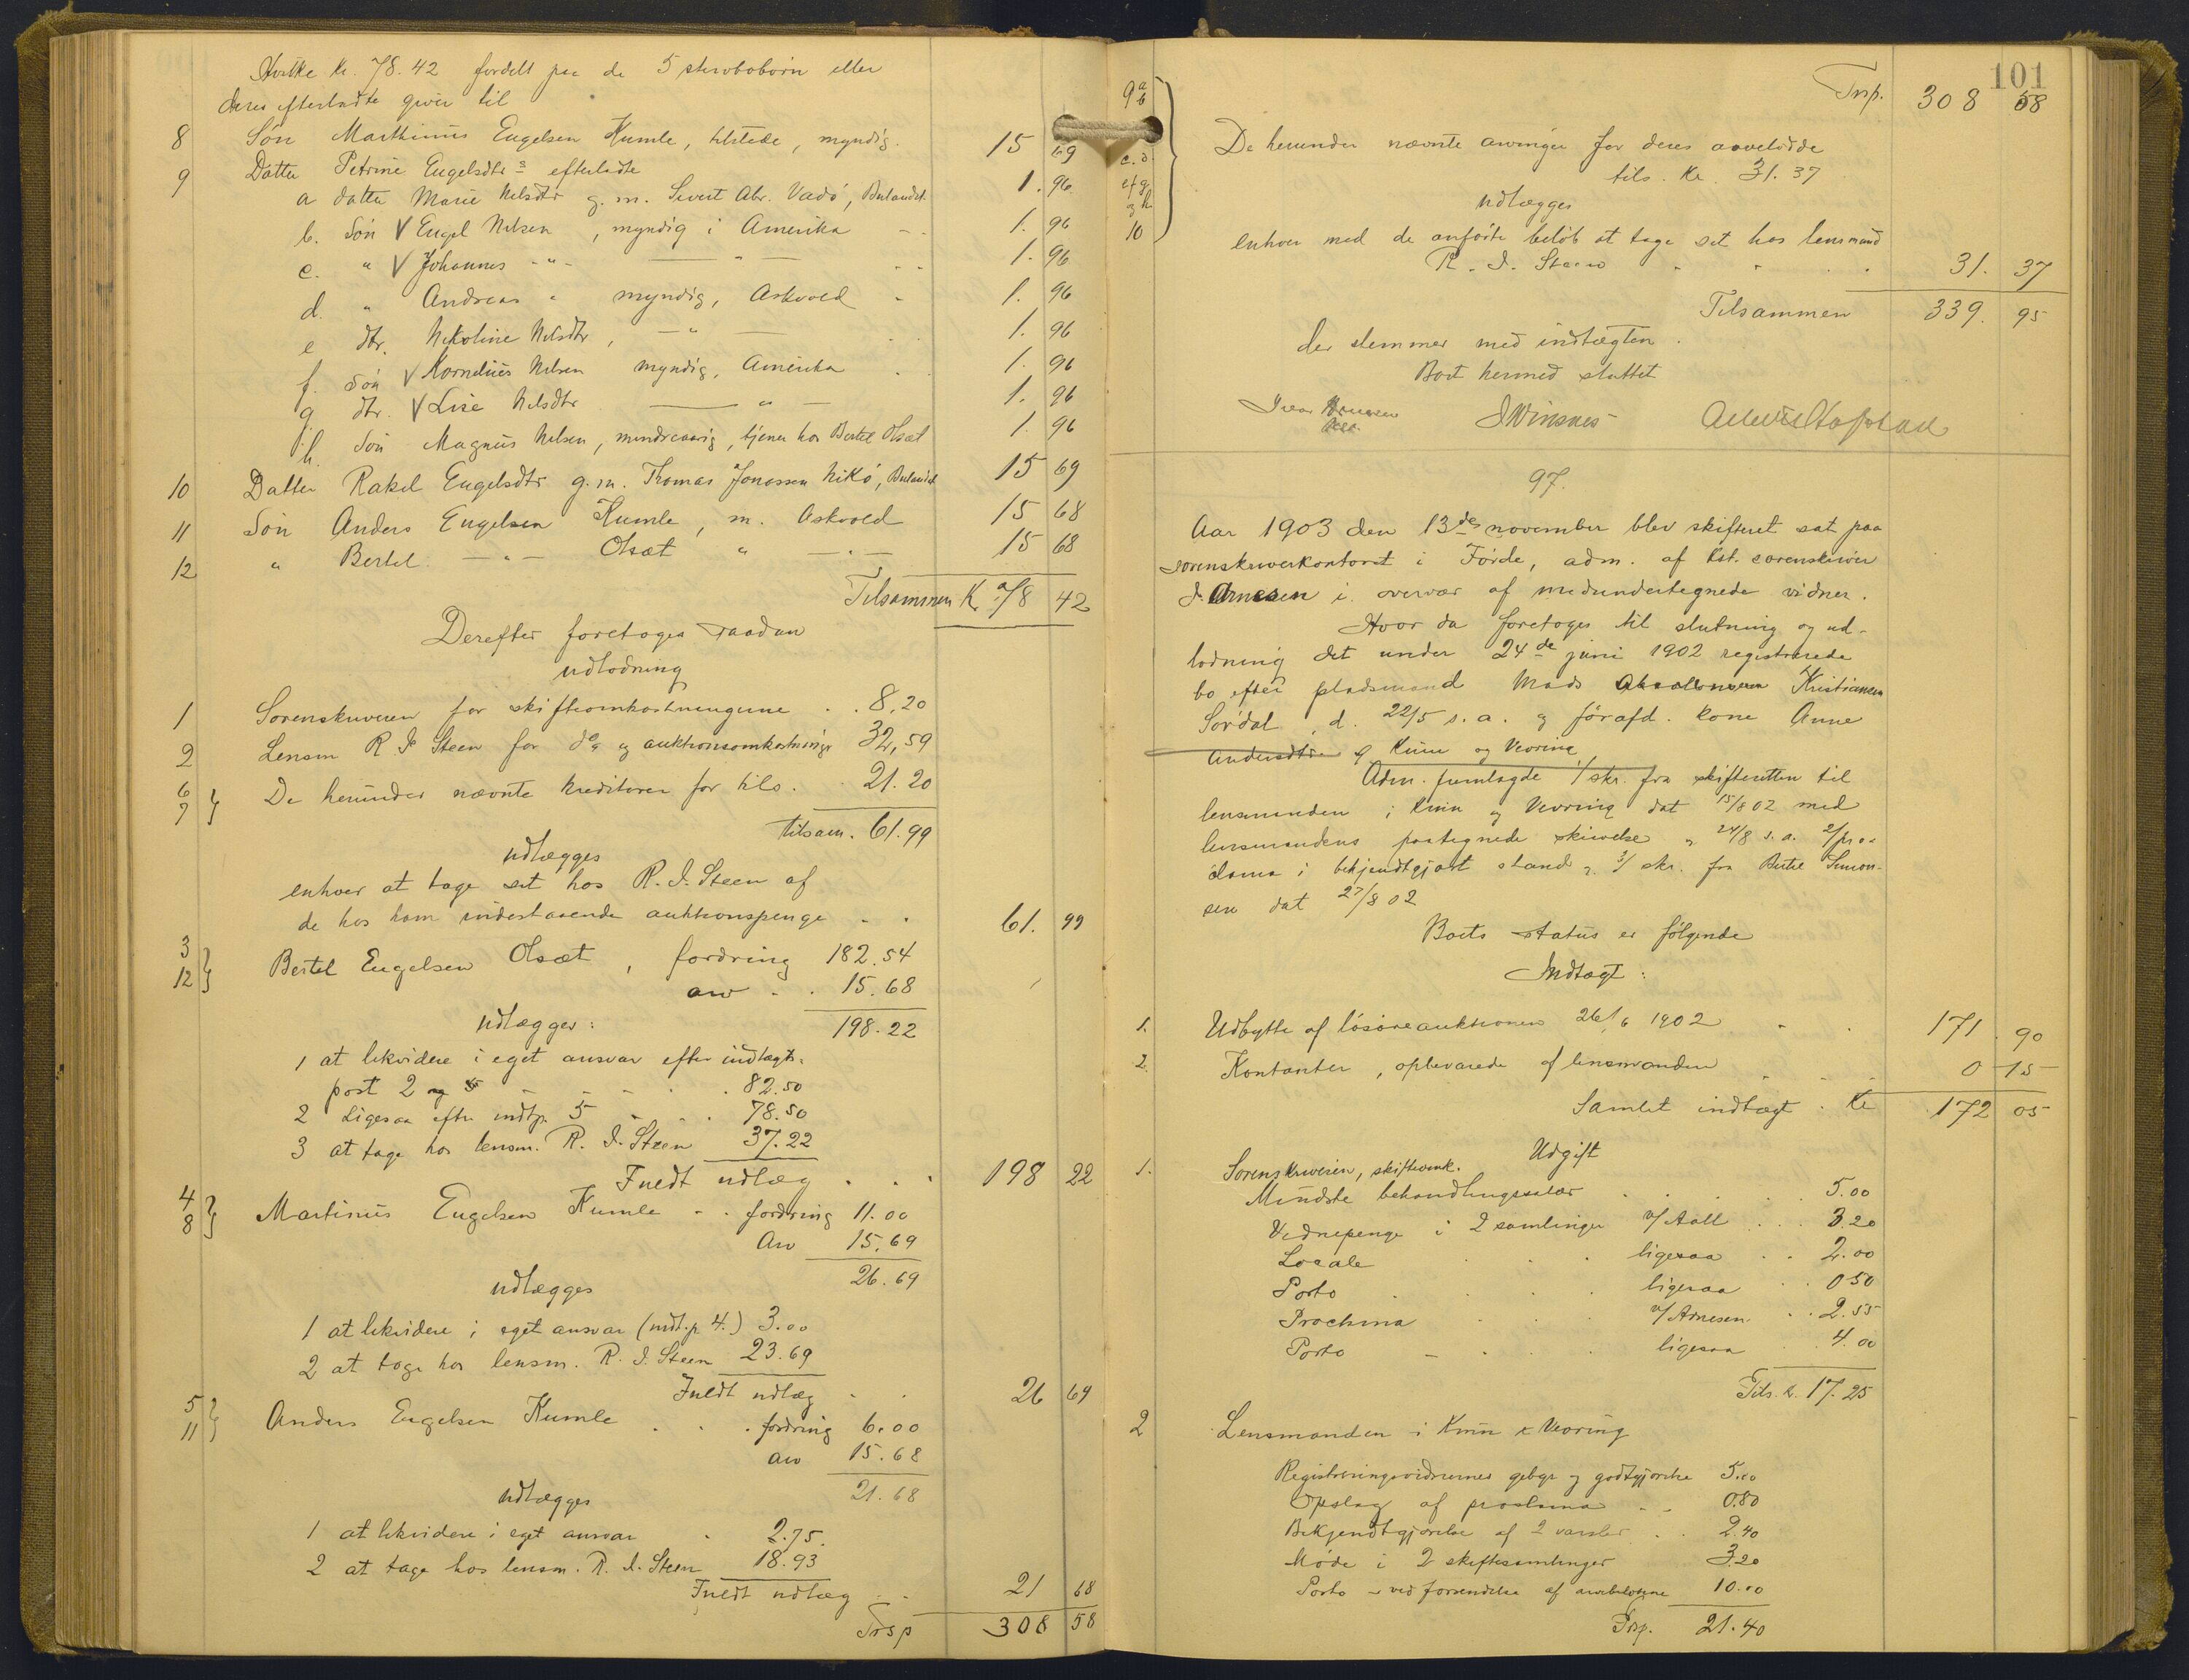 Hvilke kr. 78.42 fordelt paa de 5 sterboborn eller
deres efterladte giver til
8 Søn Marthinus Engelsen Kumle, tilstede, myndig. 15 69
9 Datter Petrine Engelsdtrs efterladte
a datter Marie Nelsdtr g. m. Sivert Abr. Vadø, Bulandet. 1. 96
b. Søn V Engel Nelsen, myndig i Amerika 1. 96
c. " V Johannes -"- — " — 1. 96
d. " Andreas " myndig, Askvold 1. 96
e dtr. Nikoline Nelsdtr, — " — 1. 96
f. Søn V Kornelius Nelsen myndig, Amerika 1. 96
g dtr. V Lise Nelsdtr — " — 1. 96
h. Søn Magnus Nelsen, mindreaarig, tjener hos Bertel Olsæt 1. 96
10 Datter Rakel Engelsdtr g. m. Thomas Jonassen Nikø, Bulandet 15 69
11 Søn Anders Engelsen Kumle, m. Askvold 15 68
12 " Bertel — " — Olsæt " — " — 15 68
Tilsammen Kr. 78 42
Derefter foretoges saadan
udlodning
1 Sorenskriveren for skifteomkostningerne . . 8,20
2 Lensm R. I. Steen for do og auktionsomkostninger 32,59
6
7 } De herunder nævnte kreditorer for tils. 21.20
tilsam. 61.99
udlægges
enhver at tage sit hos R. I. Steen af
de hos ham indestaaende auktionspenge . . 61. 99
3
12 } Bertel Engelsen Olsæt, fordring 182.54
arv . . 15.68
udlægges: 198.22
1 at likvidere i eget ansvar efter indtægts-
post 2 og 5 82.50
2 Ligesaa efter indtp. 5 78.50
3 at tage hos lensm. R. I. Steen 37.22
Fuldt udlæg . . . 198 22
4
8 } Martinus Engelsen Kumle . . fordring 11.00
Arv 15.69
udlægges 26.69
1 at likvidere i eget ansvar (indt.p. 4.) 3.00
2 at tage hos lensm. R. I. Steen 23.69
Fuldt udlæg . . 26 69
5
11 } Anders Engelsen Kumle . . . fordring 6.00
arv 15.68
udlægges 21.68
1 at likvidere i eget ansvar . 2.75.
2 at tage hos lensm. R. I. Steen 18.93
Fuldt udlæg . . 21 68
Trsp 308 58
101
Trsp. 308 58
9 a
b
c. d.
e f g
og h
10
De herunder nævnte arvinger for deres arvelodde
tils. Kr. 31.37
udlægges
enhver med de anførte beløb at tage sit hos lensmand
R. I. Steen . . . . 31. 37
Tilsammen 339. 95
der stemmer med indtægten.
Boet hermed sluttet
Ivar Arnesen
kst.
Winsnes
97.
Aar 1903 den 13de november blev skifteret sat paa
sorenskriverkontoret i Førde, adm. af kst. sorenskriver
I. Arnesen i overvær af medundertegnede vidner.
Hvor da foretoges til slutning og ud-
lodning det under 24de juni 1902 registrerede
bo efter pladsmand Mads Absalonsen Kristiansen
Sørdal, d. 22/5 s. a. og førafd. kone Anne
Andersdtr. af Kinn og Vevring
Adm. fremlagde 1/ skr. fra skifteretten til
lensmanden i Kinn og Vevring dat 15/8 02 med
lensmandens paategnede skrivelse af 24/8 s. a. 2/ pro-
clama i bekjendtgjort stand og 3/ skr. fra Bertel Simon-
sen dat 27/8 02
Boets status er følgende
Indtægt:
1. Udbytte af løsøreauktionen 26/6 1902 . . 171 90
2. Kontanter, opbevarede af lensmanden 0 15
Samlet indtægt . Kr 172 05
Udgift
1. Sorenskriveren, skifteomk.
Mindste behandlingssalær . . . . 5.00
Vidnepenge i 2 samlinger v/ Aall . . . 3.20
Locale . . . ligesaa . . 2.00
Porto . . . ligesaa . . 0 50
Proclama . . . v/ Arnesen . . 2.55
Porto — . . ligesaa . . 4.00
Tils. kr. 17.25
2 Lensmanden i Kinn & Vevring
Registreringsvidnernes gebyr og godtgjørelse 5.00
Opslag af proclama . . 0.80
Bekjendtgjørelse af 2 varsler . . 2.40
Møde i 2 skiftesamlinger 3.20
Porto ved forsendelse af arvebeløbene 10.00
Trsp. 21.40